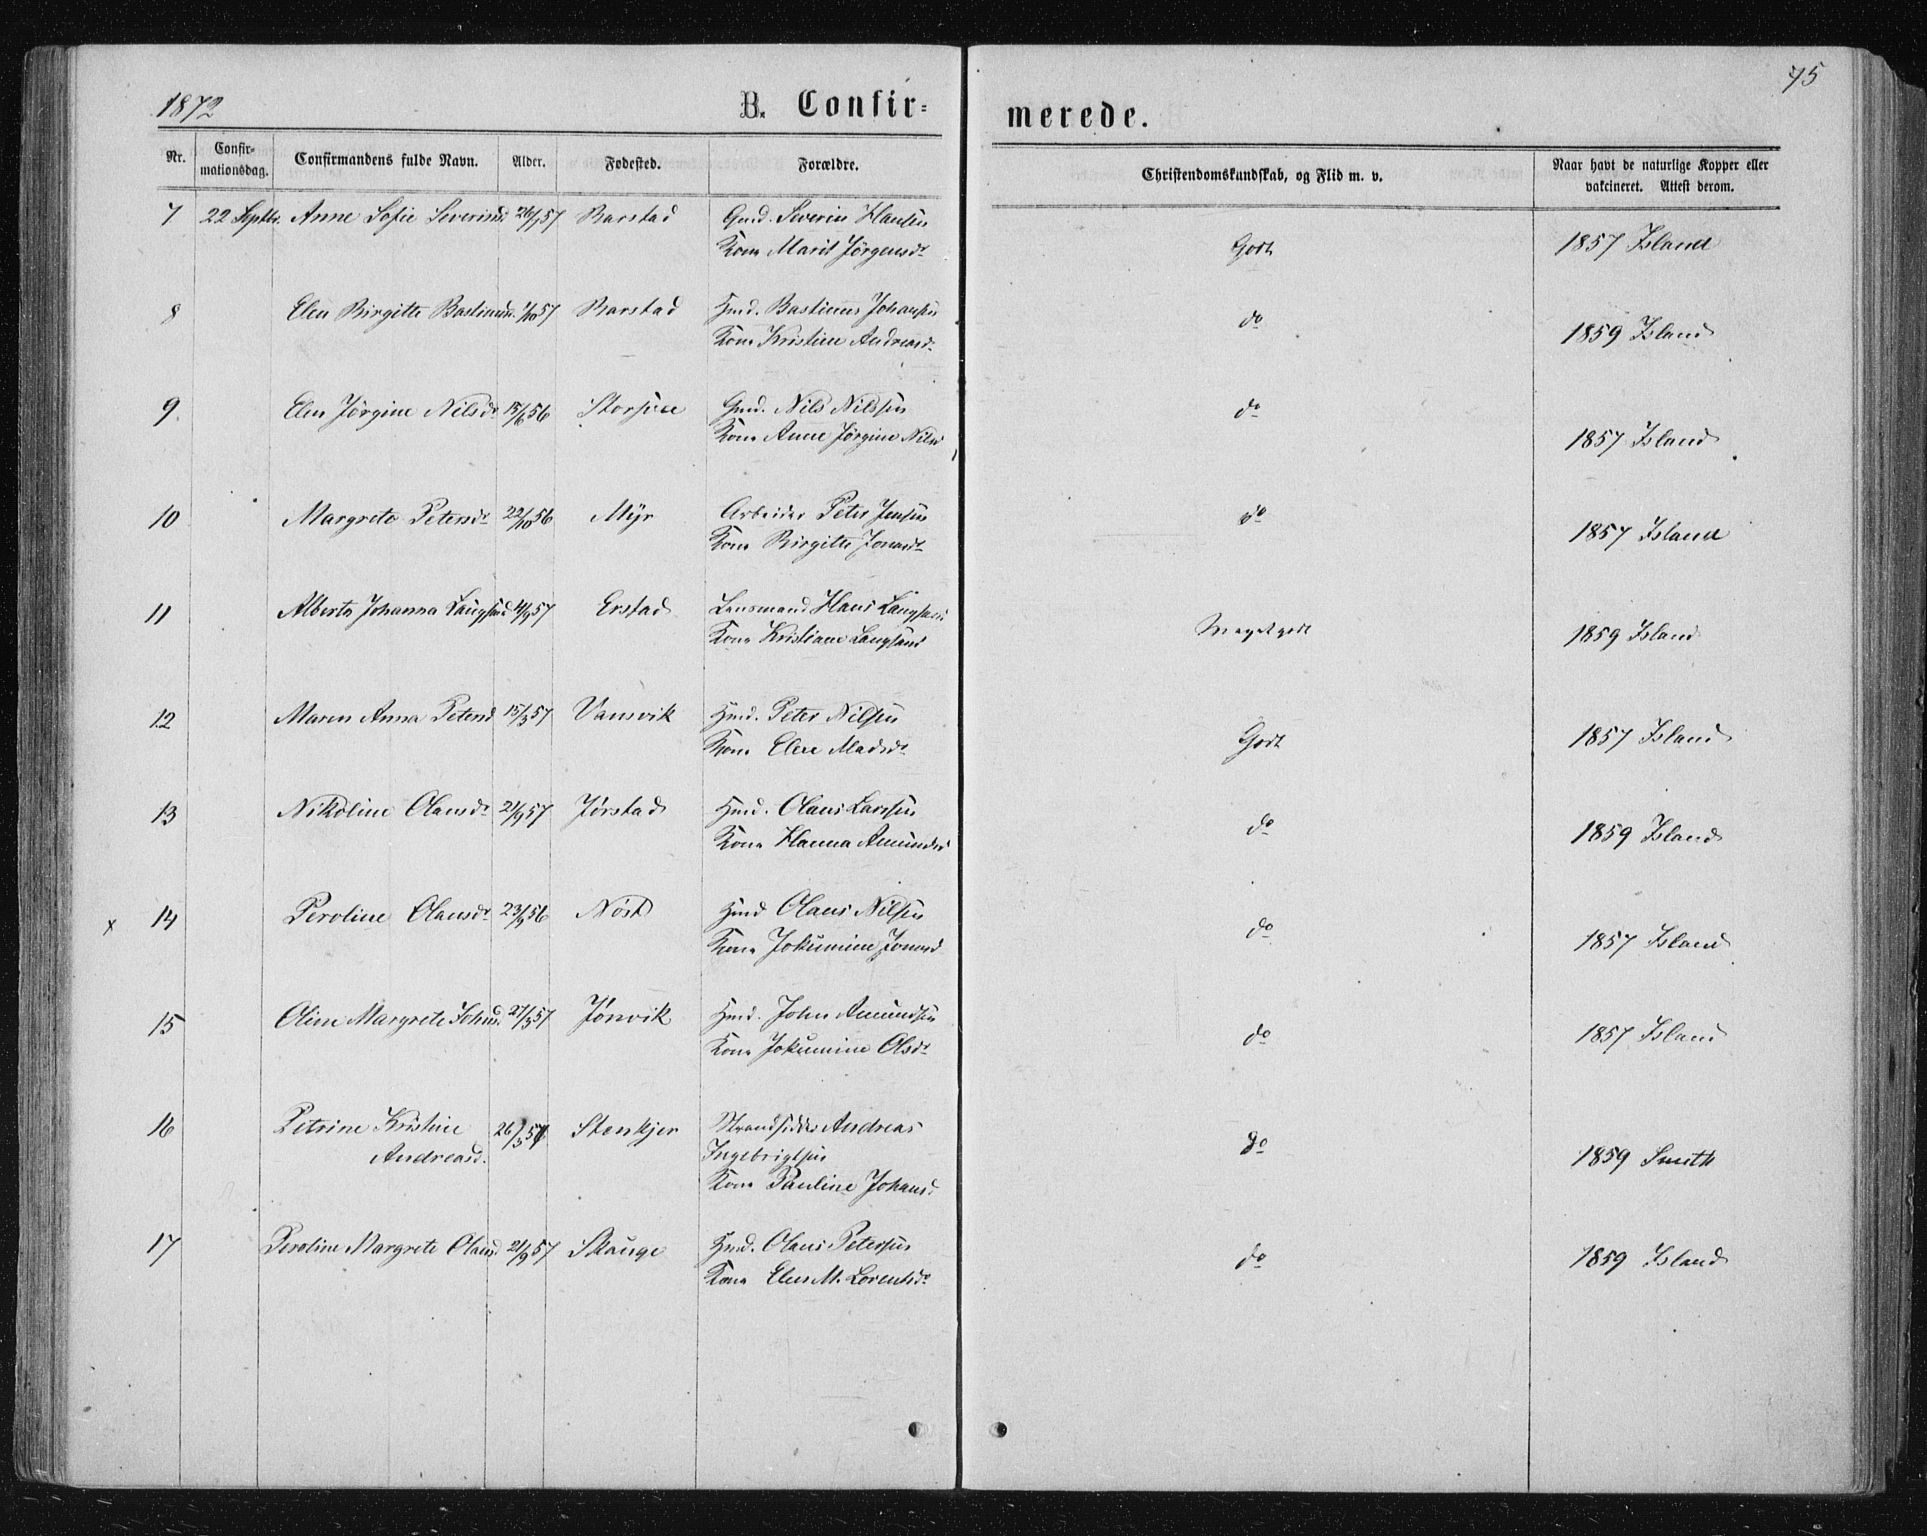 1872
B. Confir=
merede.
75
Nr.
Confir-
mationsdag.
Confirmandens fulde Navn.
Alder.
Fødested.
Forældre.
Christendomskundskab, og Flid m. v.
Naar havt de naturlige Kopper eller
vakcineret. Attest derom.
7 22 Septbr. Anne Sofie Severinsd 26/1 57 Barstad Gmd. Severin Hansen
Kone Marit Jørgensdr
Godt 1857 Island
8 Elen Birgitte Bastiansd. 1/10 57 Barstad Hmd. Bastianus Johansen
Kone Kristine Andreasd.
do 1859 Island
9. Elen Jørgine Nilsdr 15/6 56 Gmd. Nils Nilssen
Kone Anne Jørgine Nilsd
do 1857 Island
10 Margrete Petersdr 22/10 56 Myr Arbeider Peter Jensen
Kone Birgitte Jonasdr
do 1857 Island
11 Alberta Johanna Laugsand 4/9 57 Erstad Lensmand Hans Laugsand
Kone Kristiane Laugsand
Meget godt 1859 Island
12 Maren Anna Petersd 15/3 57 Vansvik Hmd. Peter Nilsen
Kone Elen Madsdr
Godt 1857 Island
13 Nikoline Olausdr 21/9 57 Jørstad Hmd. Olaus Larssen
Kone Hanna Amundsd
do 1859 Island
x 14 Peroline Olausdr 23/9 56 Nøst Hmd Olaus Nilsen
Kone Jokumine Jonasd
do 1857 Island
15 Oline Margrete Johnsd. 27/3 57 Jønvik Hmd. John Amundsen
Kone Jokumine Olsdr
do 1857 Island
16 Petrine Kristine 26/3 57 Stenkjer Strandsidder Andreas
Andreasd. Ingebrigtsen
Kone Pauline Johansd
do 1859 Smith
17 Peroline Margrete Olausd 21/9 57 Skauge Hmd. Olaus Petersen
Kone Elen M. Lorentsdr
do 1859 Island